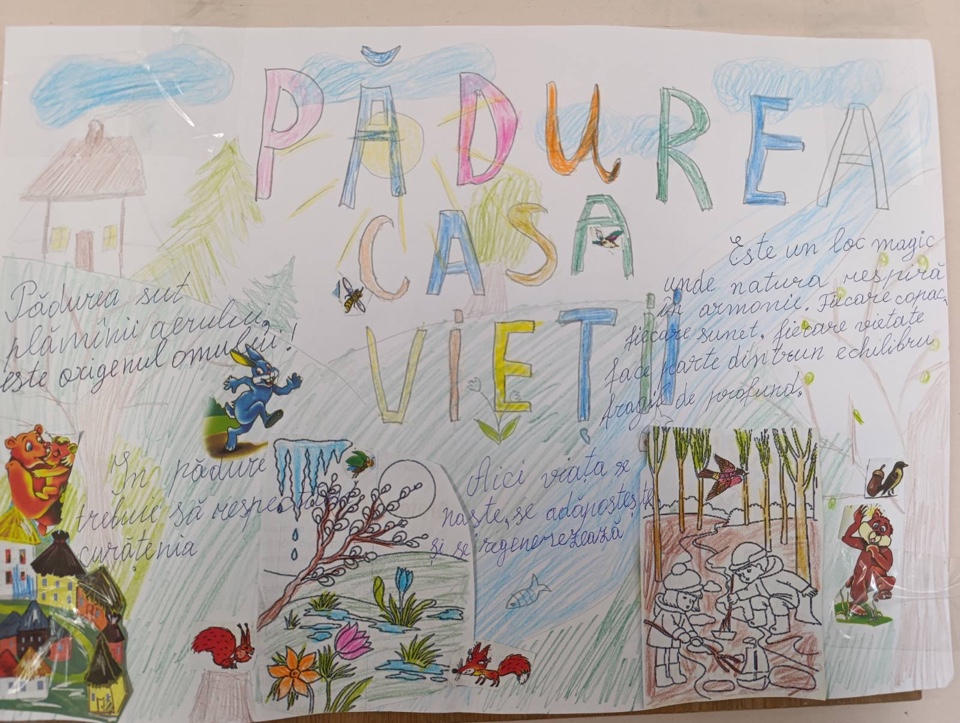 PĂDUREA
CASA
VIEȚII
Pădurea sut
plămînii aerului,
este oxigenul omului!
Este un loc magic
unde natura respiră
în armonie. Fiecare copac,
fiecare sunet, fiecare vietate
face parte dintr-un echilibru
fragil de profund.
În pădure
trebuie să respectăm
curățenia
Aici viața se
naște, se adăpostește
și se regenerează